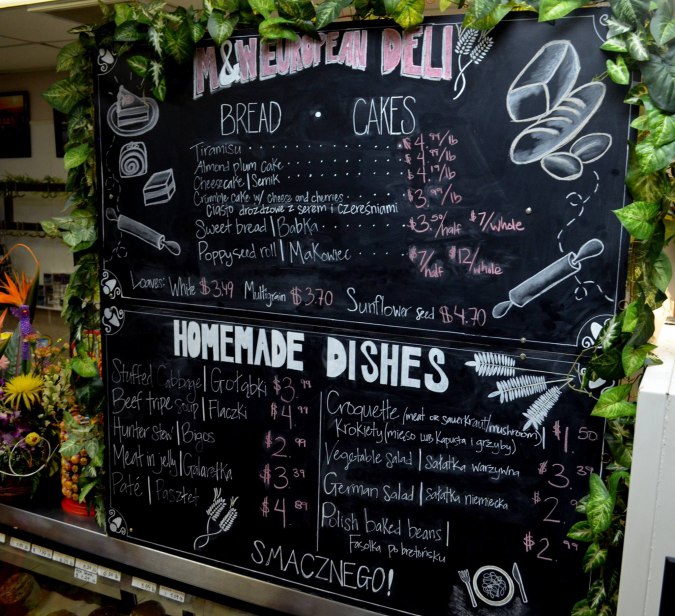 M&W EUROPEAN DELI
BREAD • CAKES
Tiramisu $4.99/lb
Almond plum cake $4.99/lb
Cheesecake | Sernik $4.19/lb
Crumble cake w/ cheese and cherries $3.99/lb
Ciasto drożdżowe z serem i czereśniami
Sweet bread | Babka $3.50/half $7/whole
Poppyseed roll | Makowiec $7/half $12/whole
Loaves: White $3.49 Multigrain $3.70 Sunflower seed $4.70
HOMEMADE DISHES
Stuffed Cabbage | Gołąbki $3.99
Beef tripe soup | Flaczki $4.99
Hunter stew | Bigos $2.99
Meat in jelly | Galaretka $3.39
Paté | Pasztet $4.89
Croquette (meat or sauerkraut/mushroom)
Krokiety (mięso lub kapusta i grzyby) $1.50
Vegetable salad | sałatka warzywna $3.39
German salad | sałatka niemiecka $2.
Polish baked beans |
Fasolka po bretońsku $2.99
SMACZNEGO!